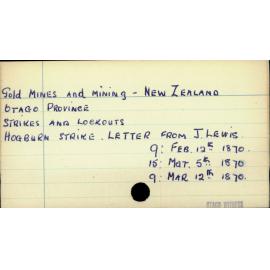 Gold Mines and mining - New Zealand
Otago Province
Strikes and Lockouts
Hogburn Strike. Letter from J. Lewis.
9: Feb. 12th 1870.
15: Mat. 5th 1870
9: Mar 12th 1870.
OTAGO WITNESS